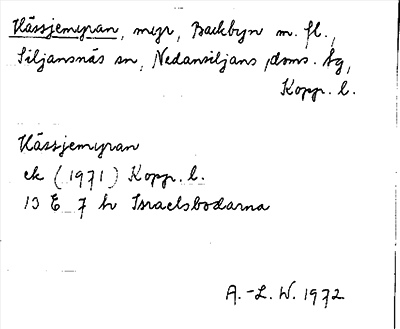 Hässjemyran, myr, Backbyn m. fl.,
Siljansnäs sn, Nedansiljans doms. hg,
Kopp. l.
Hässjemyran
ek (1971) Kopp. l.
13 E 7 h Israelsbodarna
A.-L. W. 1972